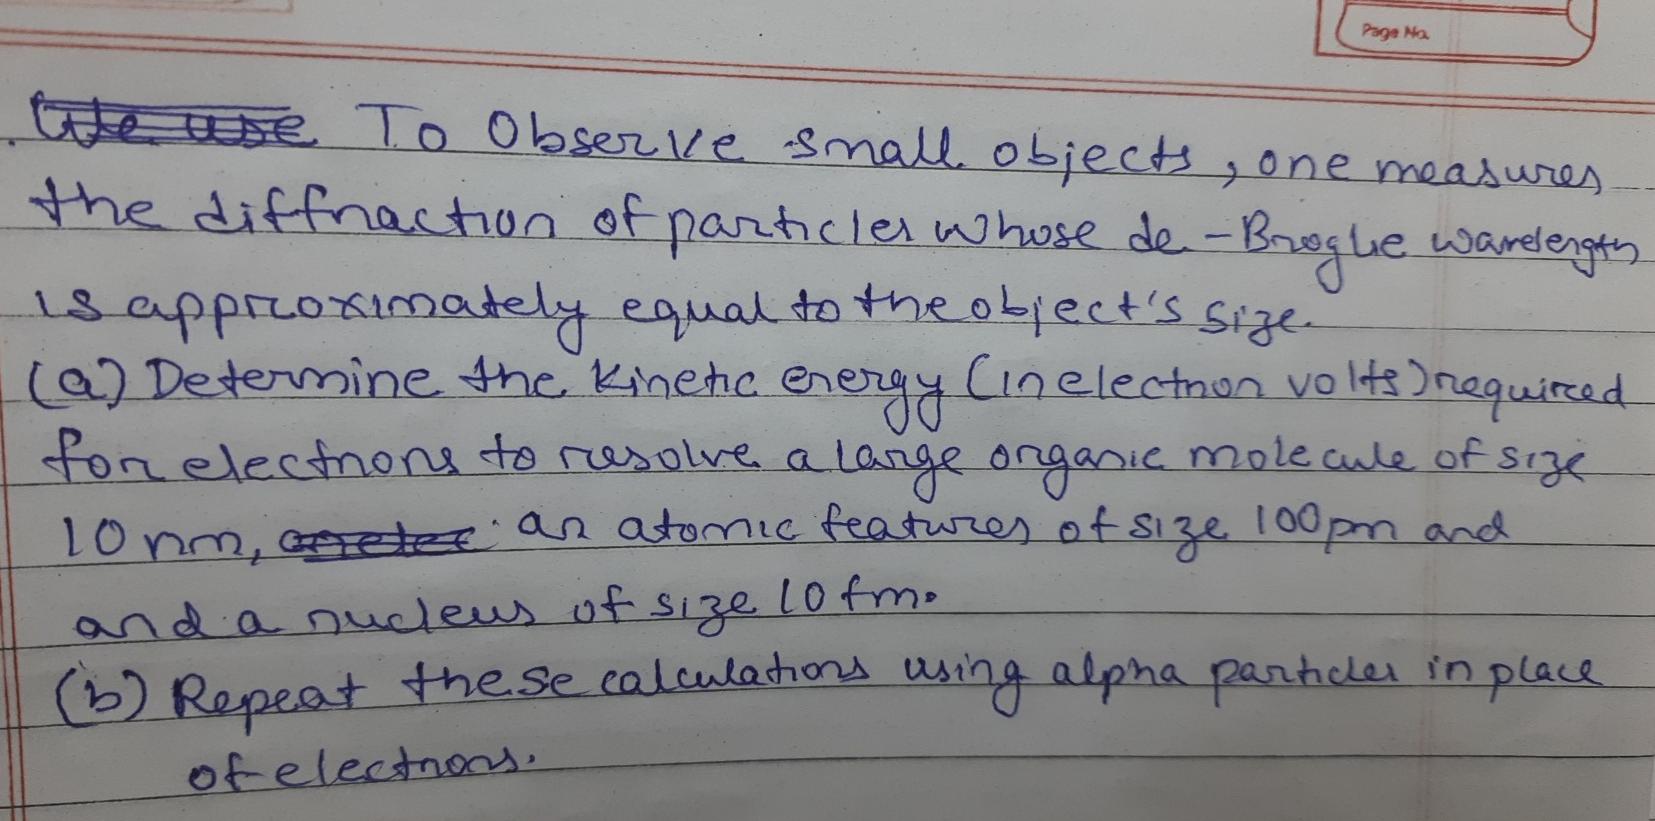 Page No.
We use To Observe small objects, one measures
the diffraction of particles whose de-Broglie wavelength
is approximately equal to the object's size.
(a) Determine the kinetic energy (in electron volts) required
for electrons to resolve a large organic molecule of size
10 nm, an atomic features of size 100pm and
and a nucleus of size 10 fm.
(b) Repeat these calculations using alpha particles in place
of electrons.